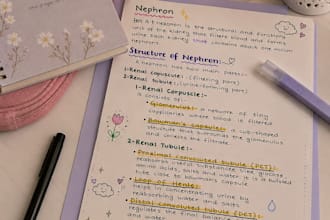 Nephron
is the structural and functional
unit of the kidney that filters blood and forms
urine each kidney contains about one million
nephrons.
Structure of Nephron:
A nephron has two main parts:-
1-Renal corpuscle:
2-Renal tubule:
1-Renal Corpuscle:
It consists of:-
Glomerulus: A network of tiny
capillaries where blood is filtered
Bowman's capsule: A cup-shaped
structure that surrounds the glomerulus
and collects the filtrate.
2-Renal Tubule:-
Proximal convoluted tubule (PCT):
reabsorbs useful substances like glucose
amino acids, salts and water
close to bowman's capsule
Loop of Henle:
helps in concentrating urine by
reabsorbing water and salts
Distal convoluted tubule (DCT)
regulates the final
and water